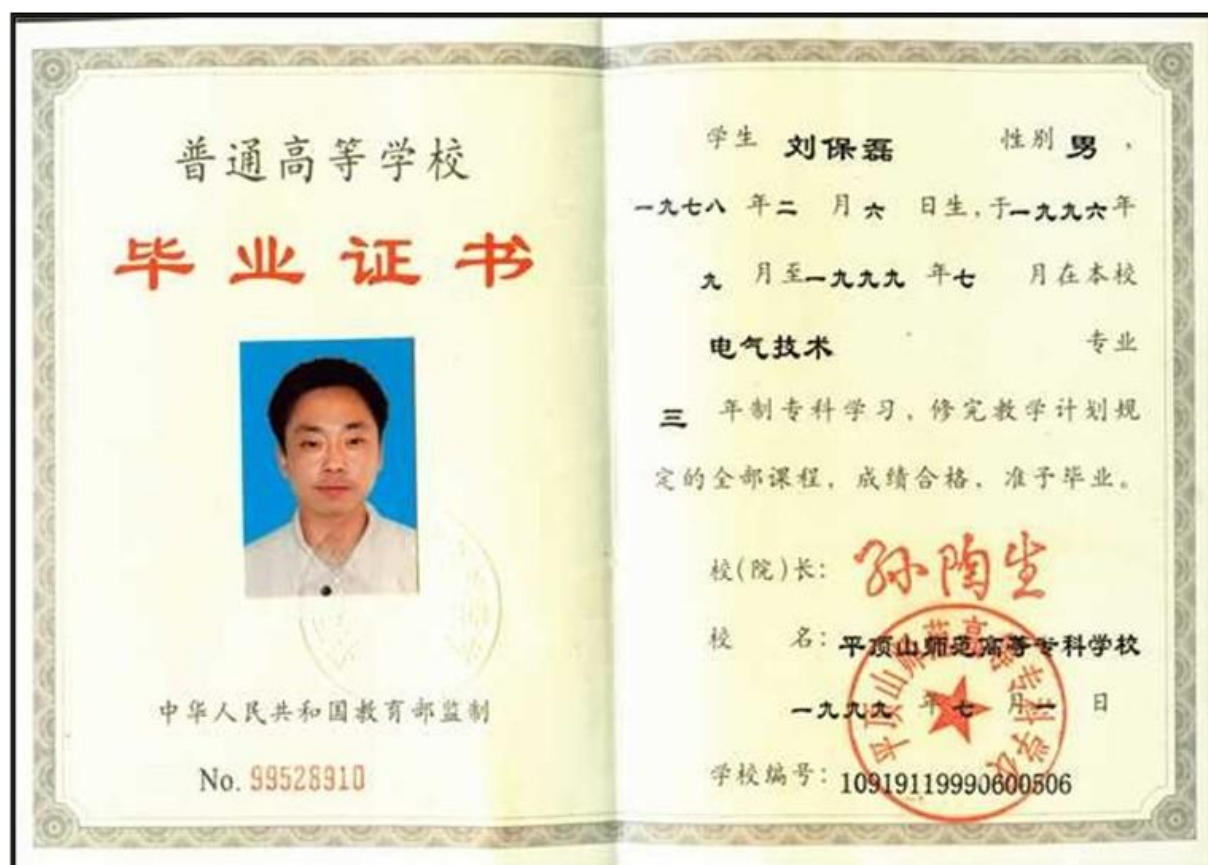 普通高等学校
毕业证书
中华人民共和国教育部监制
No. 99528910
学生 刘保磊 性别 男，
一九七八 年 二 月 六 日生，于一九九六年
九 月至一九九九 年 七 月在本校
电气技术 专业
三 年制专科学习，修完教学计划规
定的全部课程，成绩合格，准予毕业。
校(院)长：孙陶生
校 名：平顶山师范高等专科学校
一九九九 年 七 月 一 日
学校编号：10919119990600506
平顶山师范高等专科学校